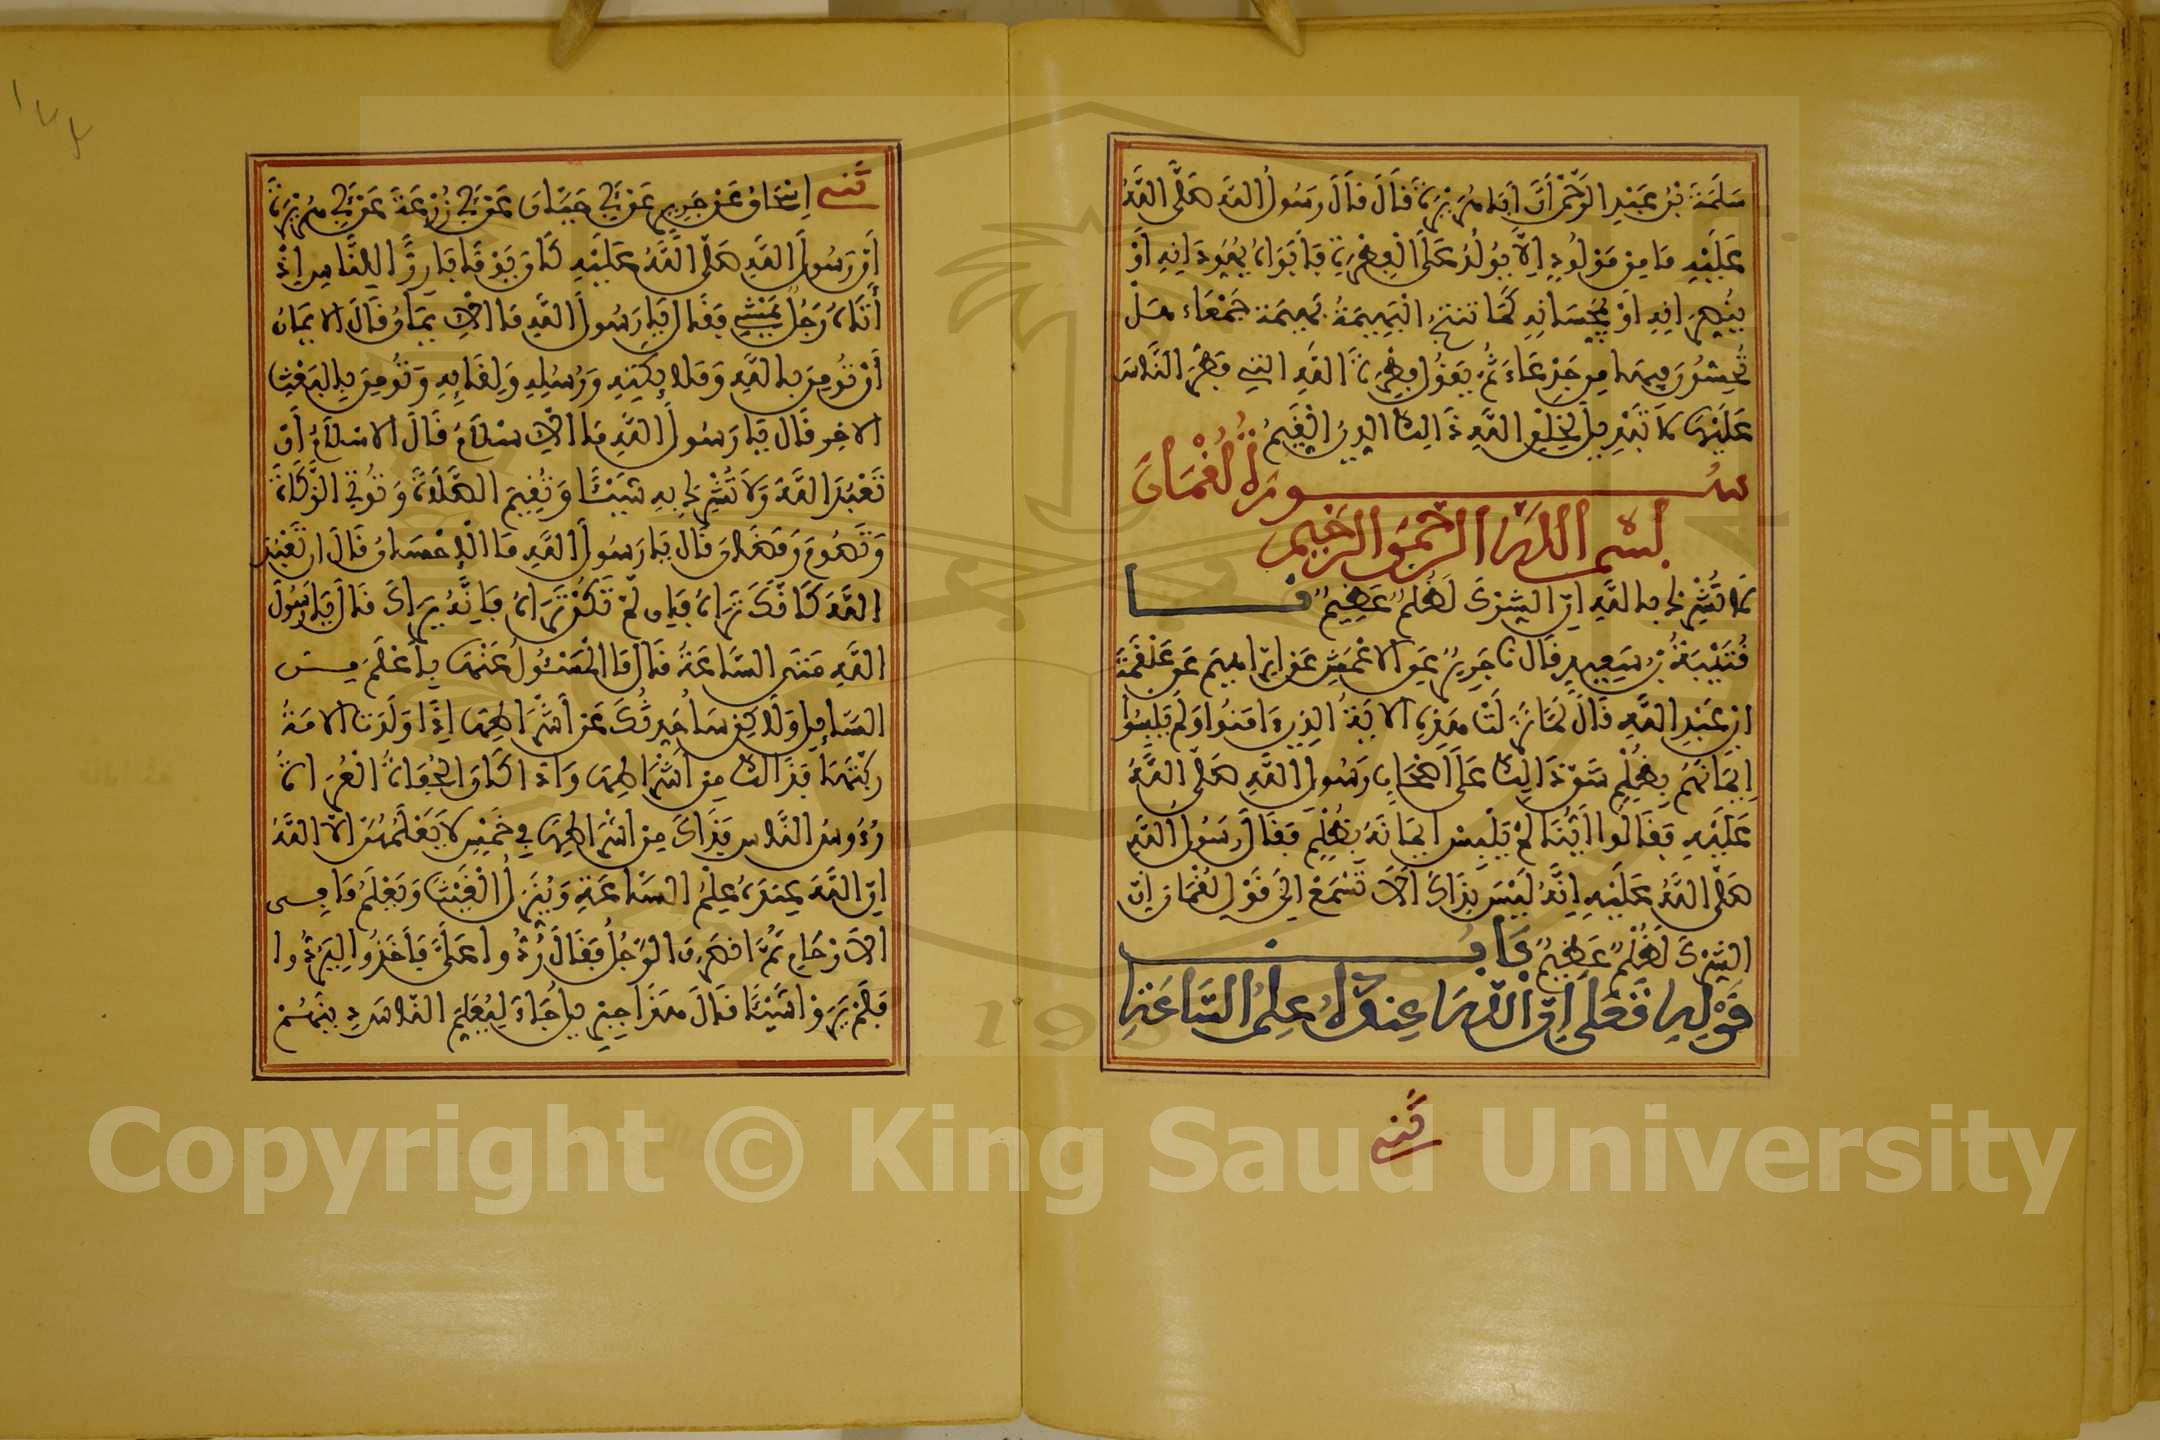 سَلَمَةَ بْنُ عَبْدِ الرَّحْمٰنِ أَنَّ أَبَا هُرَيْرَةَ قَالَ قَالَ رَسُولُ اللَّهِ صَلَّى اللَّهُ
عَلَيْهِ مَا مِنْ مَوْلُودٍ إِلَّا يُولَدُ عَلَى الْفِطْرَةِ فَأَبَوَاهُ يُهَوِّدَانِهِ أَوْ
يُنَصِّرَانِهِ أَوْ يُمَجِّسَانِهِ كَمَا تُنْتَجُ الْبَهِيمَةُ بَهِيمَةً جَمْعَاءَ هَلْ
تُحِسُّونَ فِيهَا مِنْ جَدْعَاءَ ثُمَّ يَقُولُ فِطْرَةَ اللَّهِ الَّتِي فَطَرَ النَّاسَ
عَلَيْهَا لَا تَبْدِيلَ لِخَلْقِ اللَّهِ ذَالِكَ الدِّينُ الْقَيِّمُ
سُورَةُ لُقْمَانَ
بِسْمِ اللَّهِ الرَّحْمَنِ الرَّحِيمِ
لَا تُشْرِكْ بِاللَّهِ إِنَّ الشِّرْكَ لَظُلْمٌ عَظِيمٌ نَا
قُتَيْبَةُ بْنُ سَعِيدٍ قَالَ نَا جَرِيرٌ عَنِ الْأَعْمَشِ عَنْ إِبْرَاهِيمَ عَنْ عَلْقَمَةَ
عَنْ عَبْدِ اللَّهِ قَالَ لَمَّا نَزَلَتْ هَذِهِ الْآيَةُ الَّذِينَ ءَامَنُوا وَلَمْ يَلْبِسُوا
إِيمَانَهُمْ بِظُلْمٍ شَقَّ ذَالِكَ عَلَى أَصْحَابِ رَسُولِ اللَّهِ صَلَّى اللَّهُ
عَلَيْهِ فَقَالُوا أَيُّنَا لَمْ يَلْبِسْ إِيمَانَهُ بِظُلْمٍ فَقَالَ رَسُولُ اللَّهِ
صَلَّى اللَّهُ عَلَيْهِ إِنَّهُ لَيْسَ بِذَاكَ أَلَا تَسْمَعُ إِلَى قَوْلِ لُقْمَانَ إِنَّ
الشِّرْكَ لَظُلْمٌ عَظِيمٌ بَابُ
قَوْلِهِ تَعَلَى إِنَّ اللَّهَ عِنْدَهُ عِلْمُ السَّاعَةِ
ثَنِي
ثَنِي إِسْحَاقُ عَنْ جَرِيرٍ عَنْ أَبِي حَيَّانَ عَنْ أَبِي زُرْعَةَ عَنْ أَبِي هُرَيْرَةَ
أَنَّ رَسُولَ اللَّهِ صَلَّى اللَّهُ عَلَيْهِ كَانَ يَوْمًا بَارِزًا لِلنَّاسِ إِذْ
أَتَاهُ رَجُلٌ يَمْشِي فَقَالَ يَا رَسُولَ اللَّهِ مَا الْإِيمَانُ قَالَ الْإِيمَانُ
أَنْ تُؤْمِنَ بِاللَّهِ وَمَلَائِكَتِهِ وَرُسُلِهِ وَلِقَائِهِ وَتُؤْمِنَ بِالْبَعْثِ
الْآخِرِ قَالَ يَا رَسُولَ اللَّهِ مَا الْإِسْلَامُ قَالَ الْإِسْلَامُ أَنْ
تَعْبُدَ اللَّهَ وَلَا تُشْرِكَ بِهِ شَيْئًا وَتُقِيمَ الصَّلَاةَ وَتُوتِيَ الزَّكَاةَ
وَتَصُومَ رَمَضَانَ قَالَ يَا رَسُولَ اللَّهِ مَا الْإِحْسَانُ قَالَ أَنْ تَعْبُدَ
اللَّهَ كَأَنَّكَ تَرَاهُ فَإِنْ لَمْ تَكُنْ تَرَاهُ فَإِنَّهُ يَرَاكَ قَالَ يَا رَسُولَ
اللَّهِ مَتَى السَّاعَةُ قَالَ مَا الْمَسْئُولُ عَنْهَا بِأَعْلَمَ مِنَ
السَّائِلِ وَلَاكِنْ سَأُحَدِّثُكَ عَنْ أَشْرَاطِهَا إِذَا وَلَدَتِ الْأَمَةُ
رَبَّتَهَا فَذَاكَ مِنْ أَشْرَاطِهَا وَإِذَا كَانَ الْحُفَاةُ الْعُرَاةُ
رُءُوسُ النَّاسِ فَذَاكَ مِنْ أَشْرَاطِهَا فِي خَمْسٍ لَا يَعْلَمُهُنَّ إِلَّا اللَّهُ
إِنَّ اللَّهَ عِنْدَهُ عِلْمُ السَّاعَةِ وَيُنَزِّلُ الْغَيْثَ وَيَعْلَمُ مَا فِي
الْأَرْحَامِ ثُمَّ انْصَرَفَ الرَّجُلُ فَقَالَ رُدُّوا عَلَيَّ فَأَخَذُوا لِيَرُدُّوا
فَلَمْ يَرَوْا شَيْئًا قَالَ هَذَا جِبْرِيلُ جَاءَ لِيُعَلِّمَ النَّاسَ دِينَهُمْ
١٢٢
Copyright © King Saud University